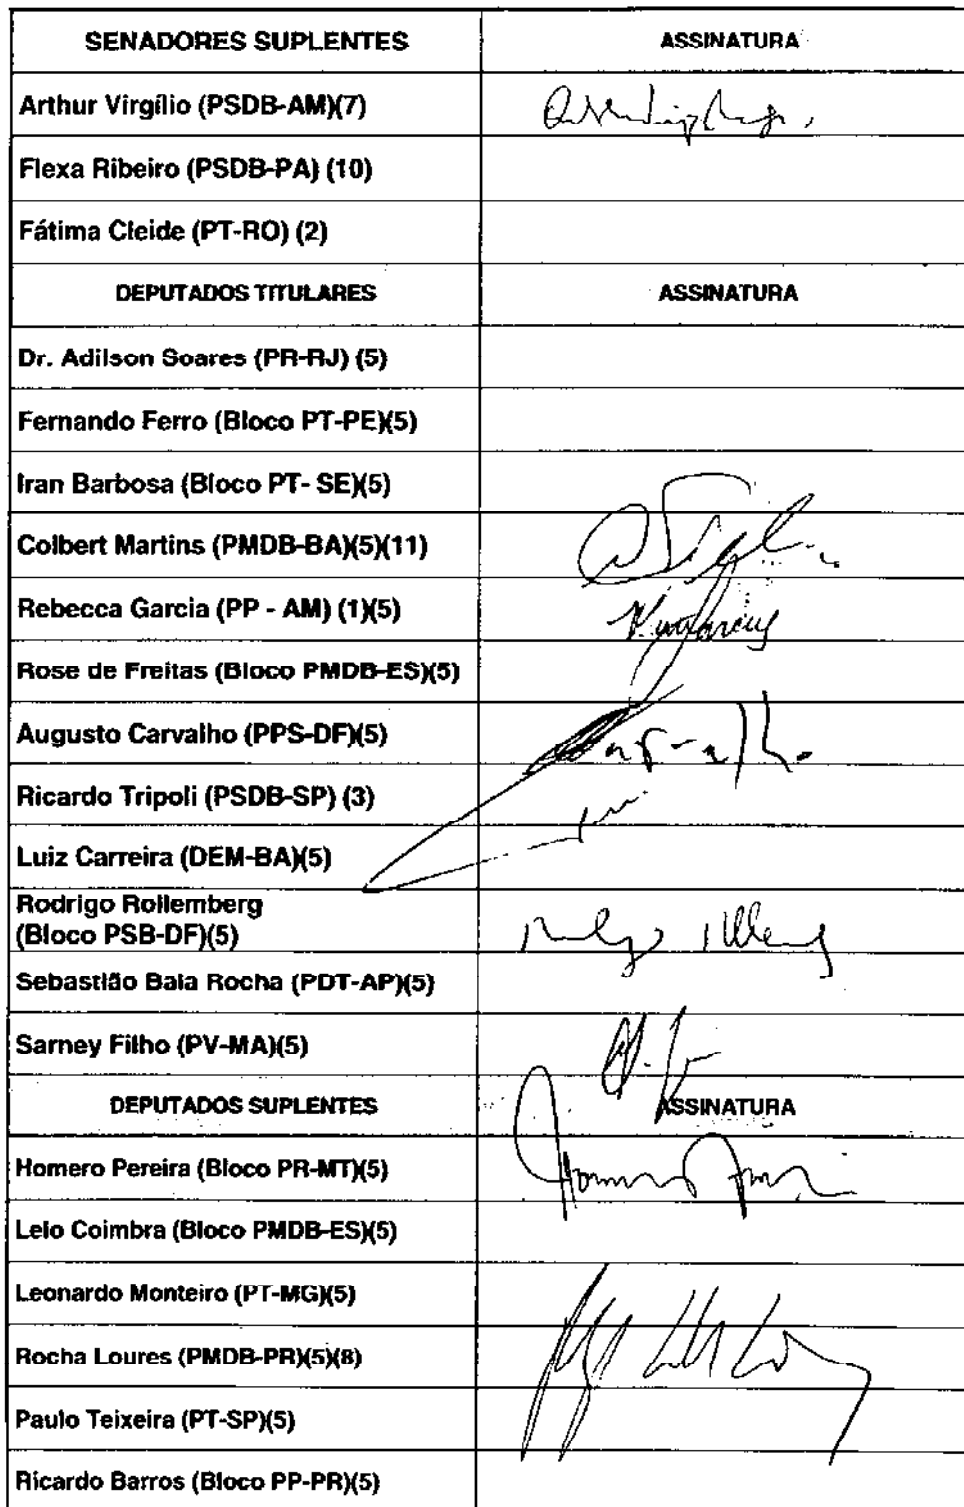 SENADORES SUPLENTES ASSINATURA
Arthur Virgílio (PSDB-AM)(7)
Flexa Ribeiro (PSDB-PA) (10)
Fátima Cleide (PT-RO) (2)
DEPUTADOS TITULARES ASSINATURA
Dr. Adilson Soares (PR-RJ) (5)
Fernando Ferro (Bloco PT-PE)(5)
Iran Barbosa (Bloco PT- SE)(5)
Colbert Martins (PMDB-BA)(5)(11)
Rebecca Garcia (PP - AM) (1)(5)
Rose de Freitas (Bloco PMDB-ES)(5)
Augusto Carvalho (PPS-DF)(5)
Ricardo Tripoli (PSDB-SP) (3)
Luiz Carreira (DEM-BA)(5)
Rodrigo Rollemberg
(Bloco PSB-DF)(5)
Sebastião Bala Rocha (PDT-AP)(5)
Sarney Filho (PV-MA)(5)
DEPUTADOS SUPLENTES ASSINATURA
Homero Pereira (Bloco PR-MT)(5)
Lelo Coimbra (Bloco PMDB-ES)(5)
Leonardo Monteiro (PT-MG)(5)
Rocha Loures (PMDB-PR)(5)(8)
Paulo Teixeira (PT-SP)(5)
Ricardo Barros (Bloco PP-PR)(5)